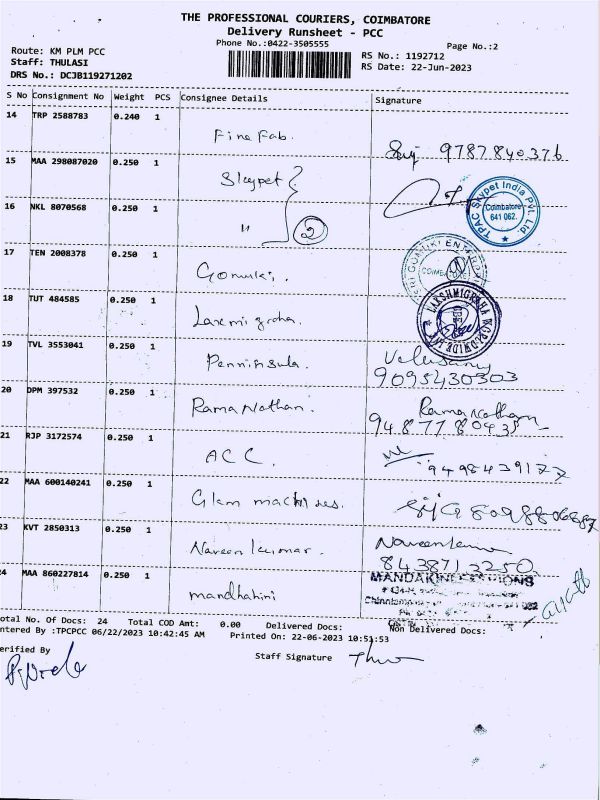 THE PROFESSIONAL COURIERS, COIMBATORE
Delivery Runsheet - PCC
Phone No.:0422-3505555
Page No.:2
Route: KM PLM PCC
Staff: THULASI
DRS No.: DCJB119271202
RS No.: 1192712
RS Date: 22-Jun-2023
S No Consignment No Weight PCS Consignee Details Signature
14 TRP 2588783 0.240 1
Fine Fab. 9787840376
15 MAA 298087020 0.250 1
Skypet
TPAC Skypet India Pvt. Ltd.
Coimbatore
641 062.
16 NKL 8070568 0.250 1
" 2
17 TEN 2008378 0.250 1
Gomuki.
18 TUT 484585 0.250 1
Laxmi graha.
LAKSHMIGRAHA WORLDWIDE
19 TVL 3553041 0.250 1
Penninsula. Velusamy
9095430303
20 DPM 397532 0.250 1
Rama Nathan. Rama Nathan
9487780435
21 RJP 3172574 0.250 1
ACC. 9498439177
22 MAA 600140241 0.250 1
Glam machines.
23 KVT 2850313 0.250 1
Naveen kumar. Naveenkumar
8438713250
24 MAA 860227814 0.250 1
mandhahini
Total No. Of Docs: 24 Total COD Amt: 0.00 Delivered Docs: Non Delivered Docs:
Entered By :TPCPCC 06/22/2023 10:42:45 AM Printed On: 22-06-2023 10:51:53
Verified By
Staff Signature